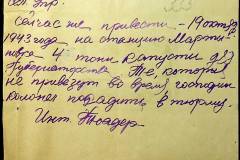 Сейчас же привести - 19 октября
1943 года на станцию Марти-
новка 4 тонн капусти для
Губернаторства Те, которые
не привезут во время господин
колонел посадить в тюрму.
Инт. Тоадер.